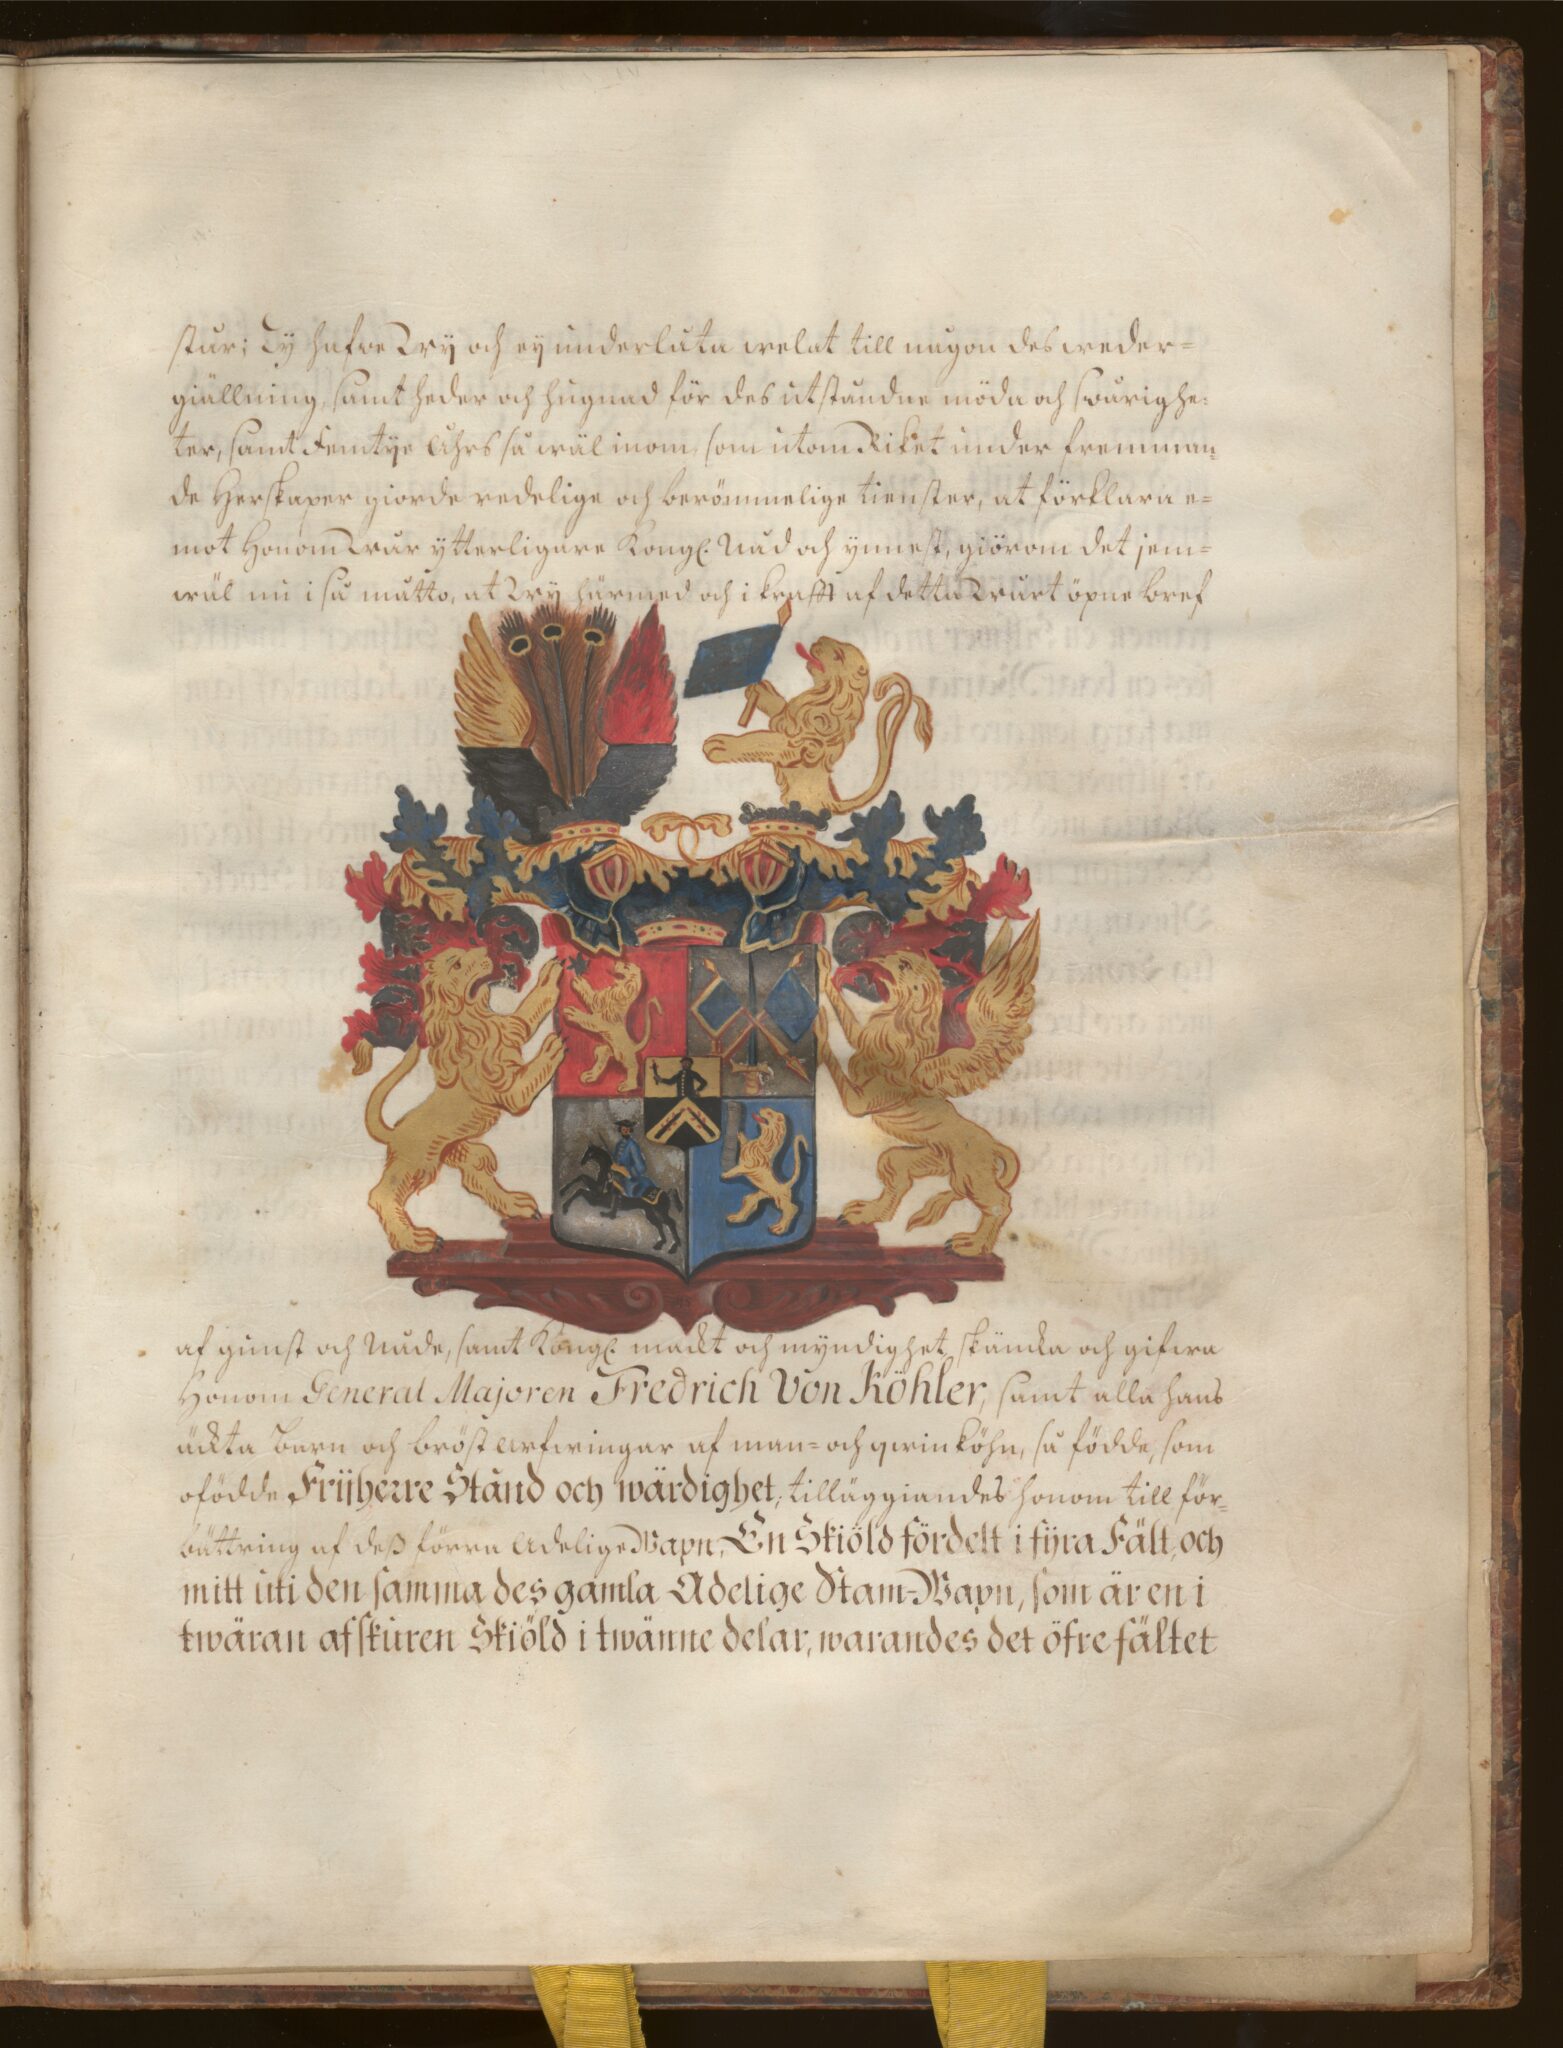 star; Ty hafve Wy och ey underlåta welat till någon des weder=
giällning, samt heder och hugnad för des utståndne möda och swårighe:
ter, samt Femtye Åhrs så wäl inom, som utom Riket under fremman=
de Herskaper giorde redelige och berömmelige tienster, at förklara e=
mot Honom Wår ytterligare Kongl. Nåd och ynnest, giörom det jem=
wäl nu i så måtto, at Wy härmed och i krafft af detta Wårt öpne bref
af gunst och Nåde, samt Kongl. mackt och myndighet, skäncka och gifwa
Honom General Majoren Fredrich Von Köhler, samt alla hans
äckta Barn och bröst Arfwingar af man= och qwinköhn, så födde, som
ofödde Frijherre Stånd och wärdighet, tilläggiandes honom till för=
bättring af deß förra Adelige Wapn, En Skiöld fördelt i fyra Fält, och
mitt uti den samma des gamla Adelige Stam=Wapn, som är en i
twäran afskuren Skiöld i twänne delar, warandes det öfre fältet